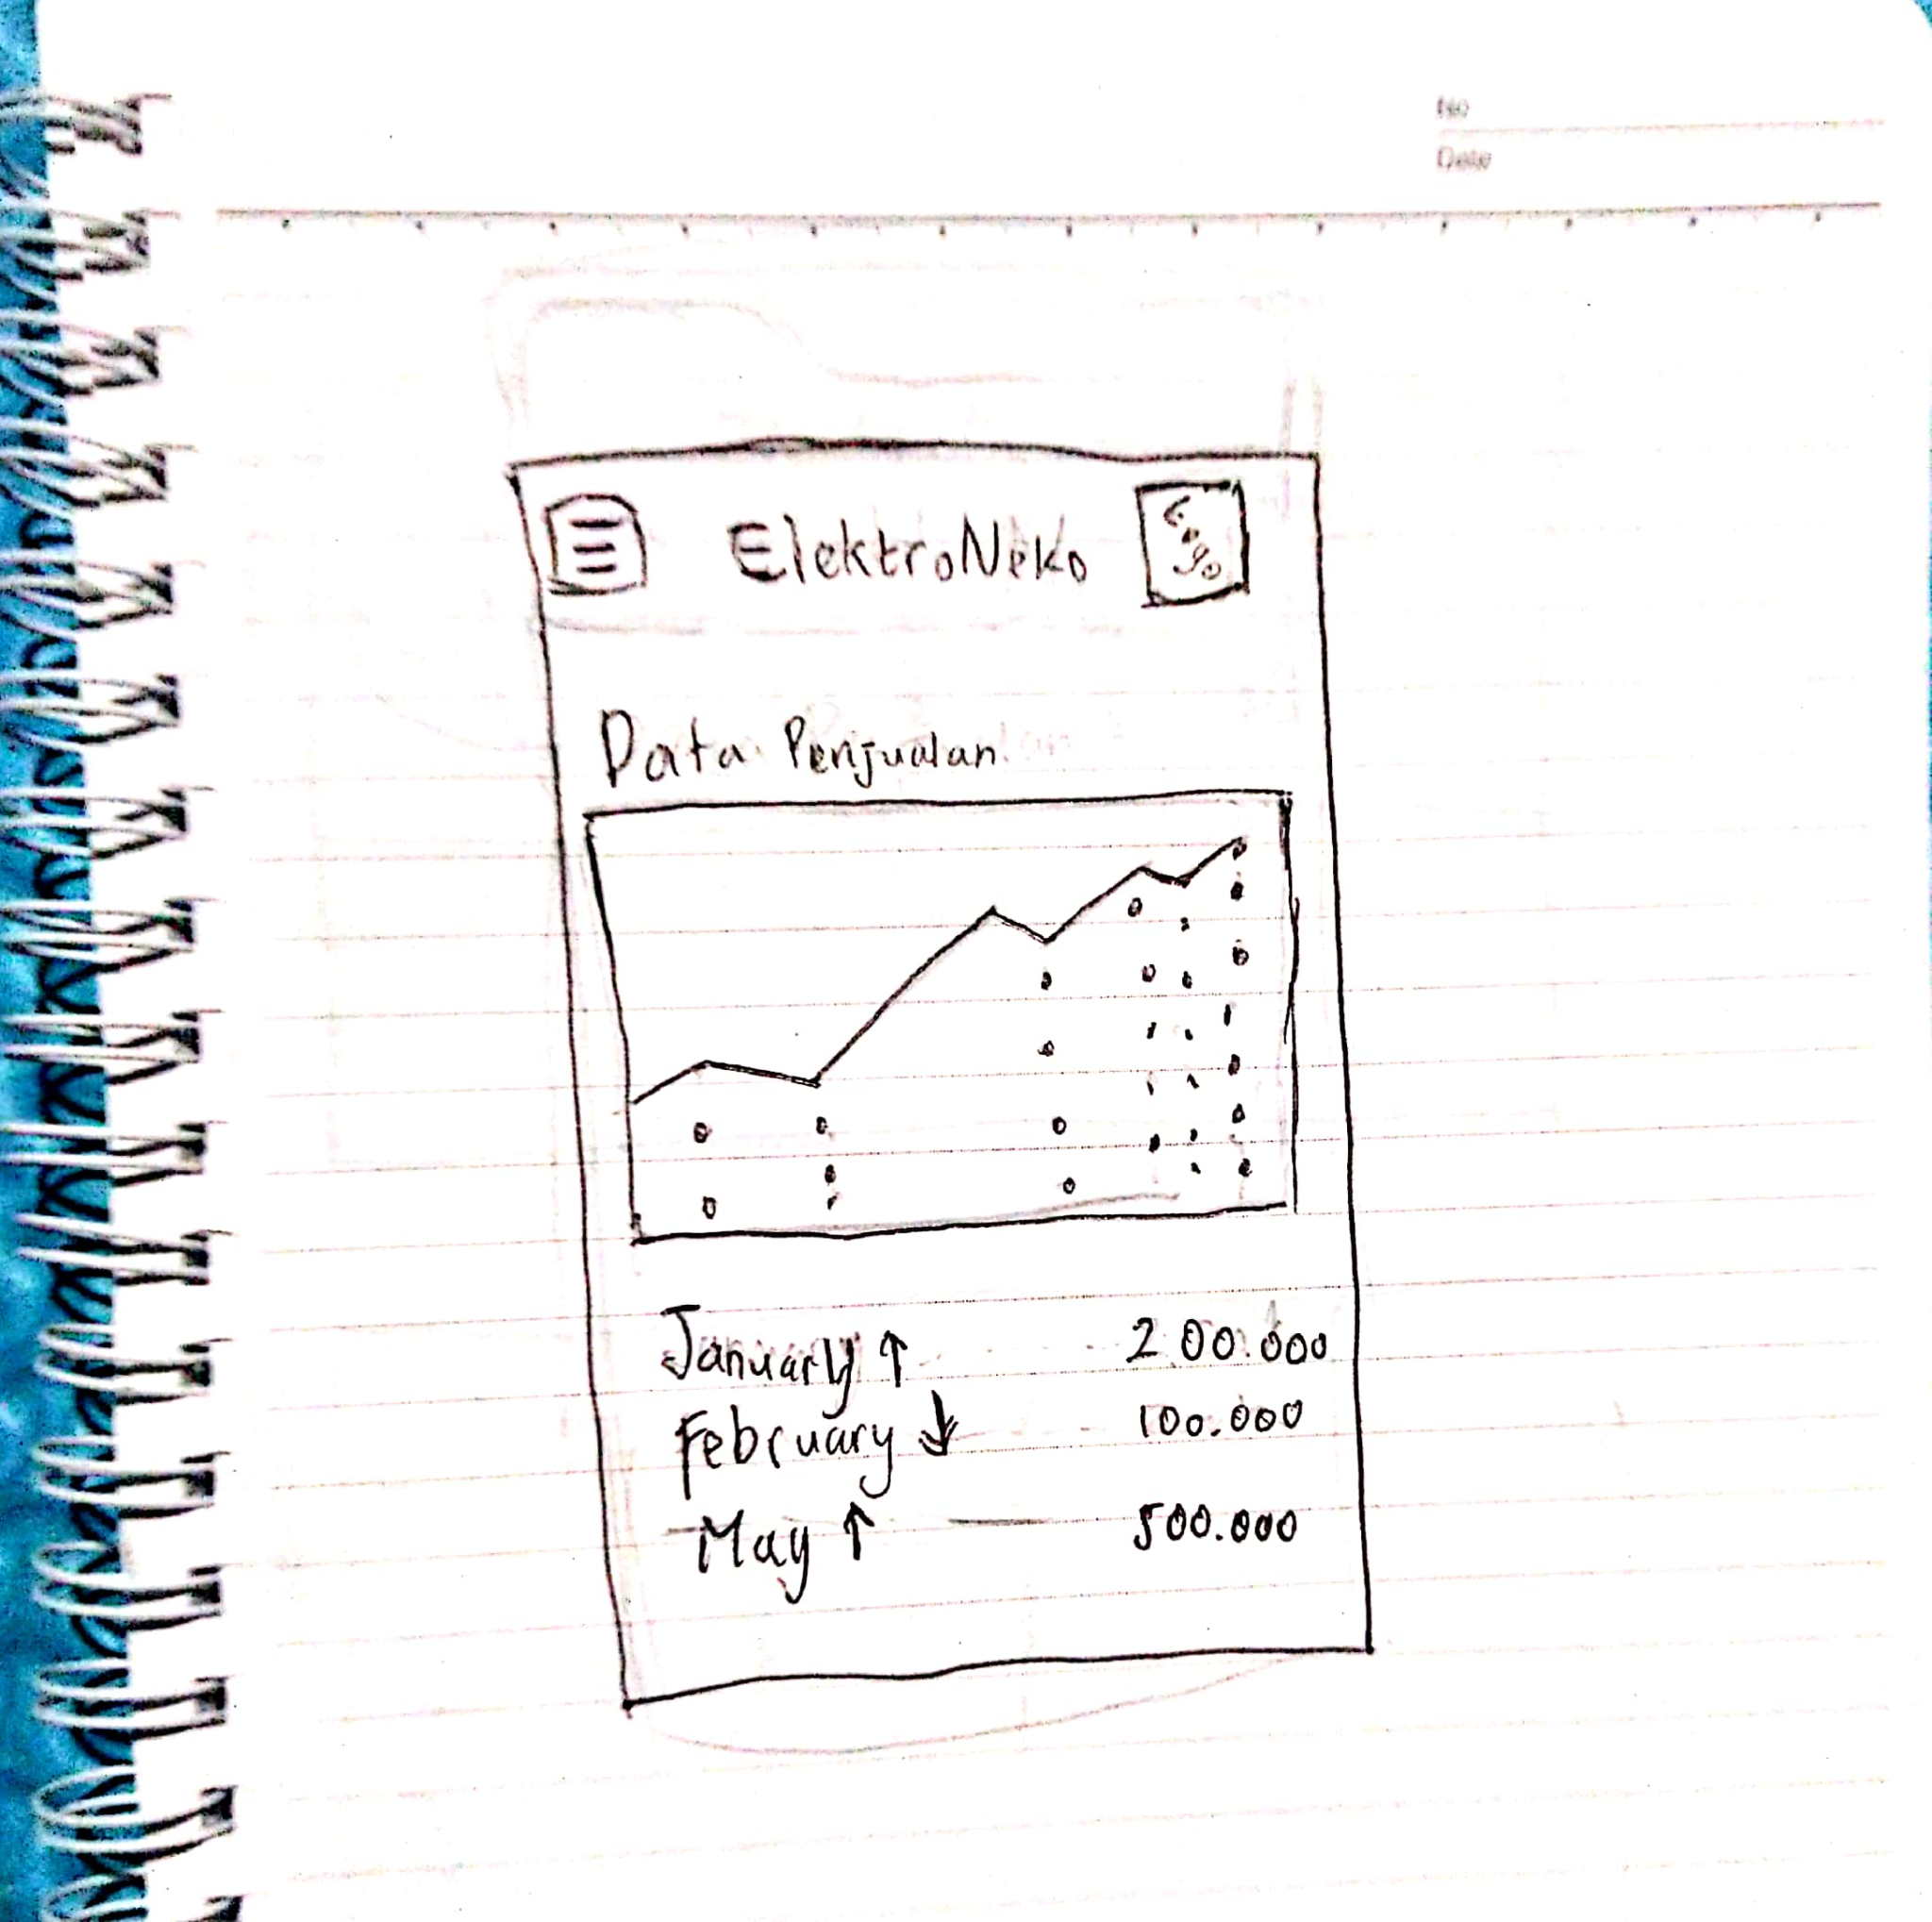 No
Date
ElektroNeko Logo
Data Penjualan
January ↑ 200.000
February ↓ 100.000
May ↑ 500.000